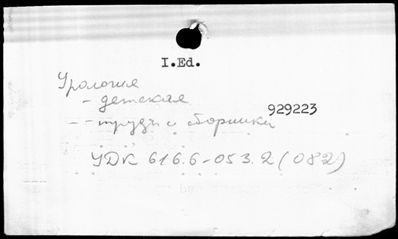 I.Ed.
Урология
- детская
929223
-- труды и сборники
УДК 616.6-053.2(082)